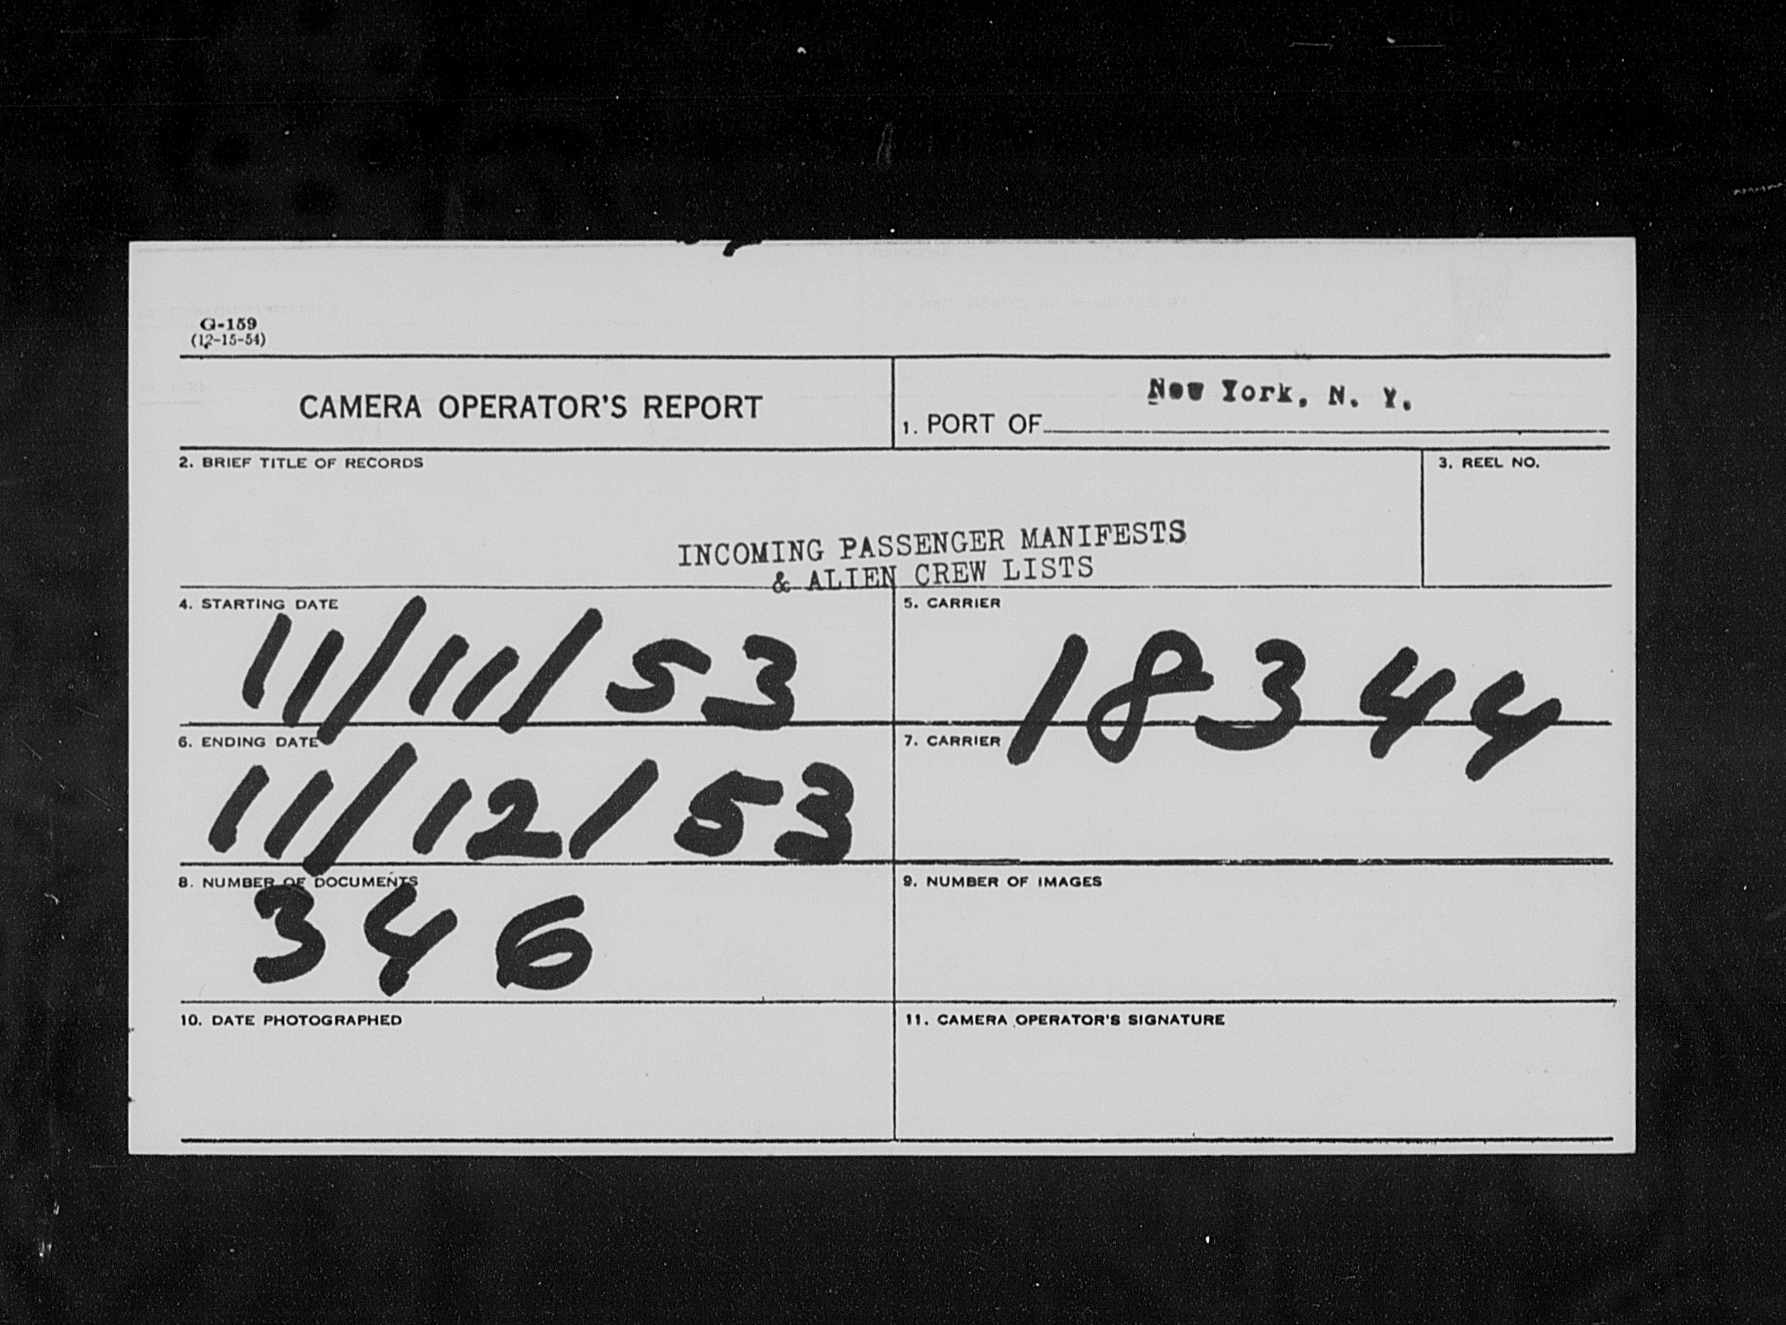 G-159
(12-15-54)
CAMERA OPERATOR'S REPORT
1. PORT OF New York, N. Y.
2. BRIEF TITLE OF RECORDS
3. REEL NO.
INCOMING PASSENGER MANIFESTS
& ALIEN CREW LISTS
4. STARTING DATE
11/11/53
5. CARRIER
18344
6. ENDING DATE
11/12/53
7. CARRIER
8. NUMBER OF DOCUMENTS
346
9. NUMBER OF IMAGES
10. DATE PHOTOGRAPHED
11. CAMERA OPERATOR'S SIGNATURE